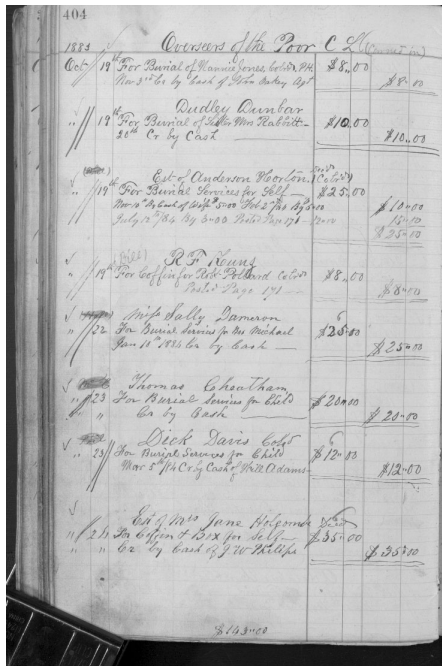 404
1883 Overseers of the Poor C L
Oct 19th For Burial of Nannie Jones, Col'd, P.H. $8.00
Nov 3rd Cr by Cash of John Oakey Agt $8.00
Dudley Dunbar
" 19th For Burial of Wm Rabbitt $10.00
20th Cr by Cash $10.00
Est of Anderson Horton (Col'd)
" 19th For Burial Services for Self $25.00
Nov 10th By Cash of Wife $5.00 $10.00
July 12th /84 By Posted Page 171 15.00
$25.00
(Bill) R F
" 19th For Coffin for Robt Col'd $8.00
Posted Page 171 $8.00
Miss Sally Dameron
" 22 For Burial Services for Mrs Michael $25.00
Jan 10th 1884 Cr by Cash $25.00
Thomas Cheatham
" 23 For Burial Services for Child $20.00
" " Cr by Cash $20.00
Dick Davis Col'd
" 23 For Burial Services for Child $12.00
Mar 5th /84 Cr by Cash of Adams $12.00
Est of Mrs Jane Holcombe
" 24 For Coffin & Box for Self $35.00
" " Cr by Cash of J W Philips $35.00
$143.00